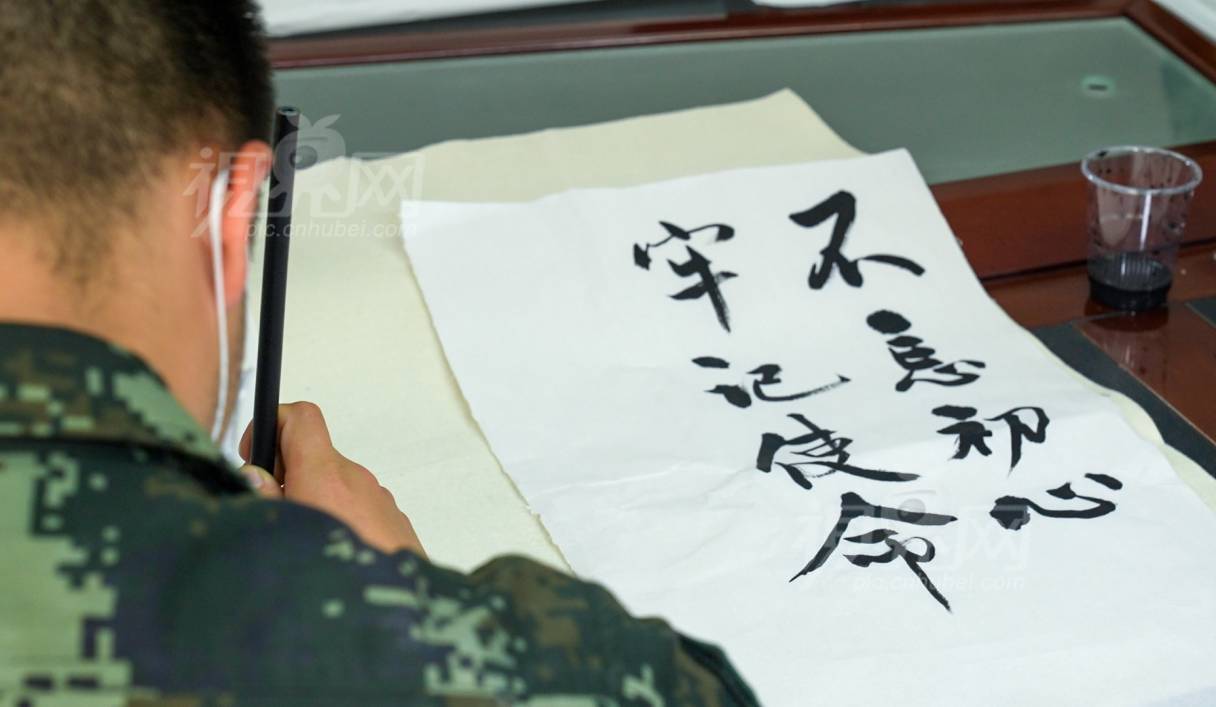 不忘初心
牢记使命
视界网
pic.cnhubei.com
视界网
pic.cnhubei.com